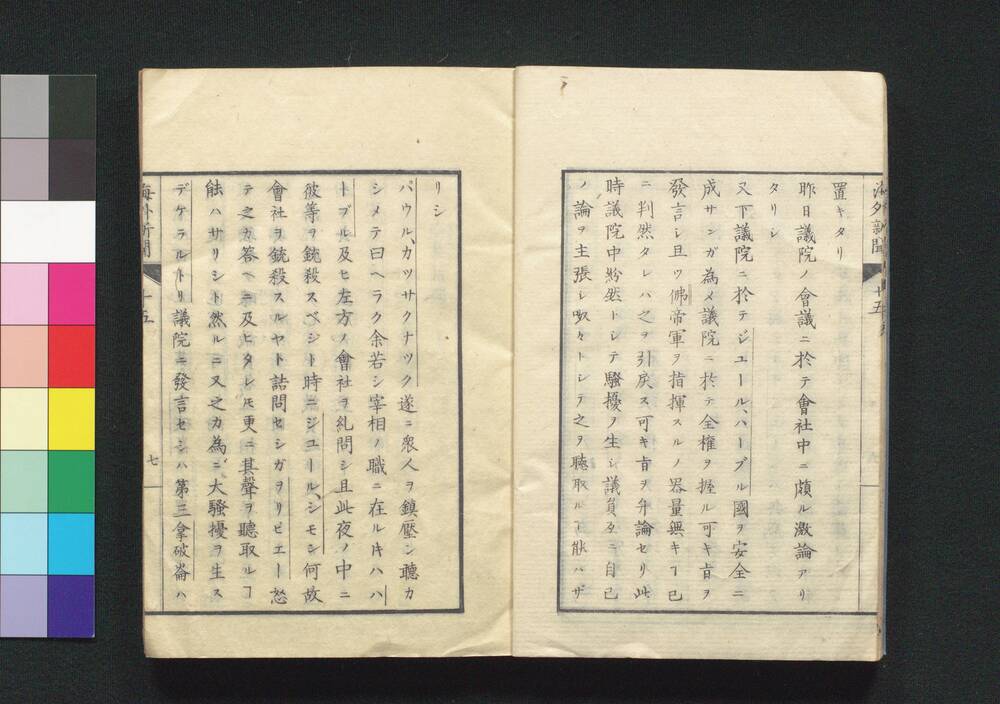 海外新聞
十五
置キタリ
昨日議院ノ會議ニ於テ會社中ニ頗ル激論アリ
タリシ
又下議院ニ於テジユール、ハーブル國ヲ安全ニ
成サンガ為メ議院ニ於テ全權ヲ握ル可キ旨ヲ
發言シ且ツ佛帝軍ヲ指揮スルノ器量無キヿ已
ニ判然タレハ之ヲ引戻ス可キ旨ヲ弁論セリ此
時議院中紛然トシテ騷擾ヲ生シ議員互ニ自己
ノ論ヲ主張シ呶々トシテ之ヲ聴取ルヿ能ハザ
リシ
パウル、カツサクナツク遂ニ衆人ヲ鎮壓シ聴カ
シメテ曰ヘラク余若シ宰相ノ職ニ在ル片ハハ
トブル及ヒ左方ノ會社ヲ糺問シ且此夜ノ中ニ
彼等ヲ銃殺スベシト時ニジユール、シモン何故
會社ヲ銃殺スルヤト詰問セシガヲリビエー怒
テ之カ答ヘニ及ヒタレ𪜈更ニ其聲ヲ聴取ルヿ
能ハサリシト然ルニ又之カ為ニ大騷擾ヲ生ス
デケラルトリ議院ニ發言セシハ第三拿破崙ハ
海外新聞
十五
七